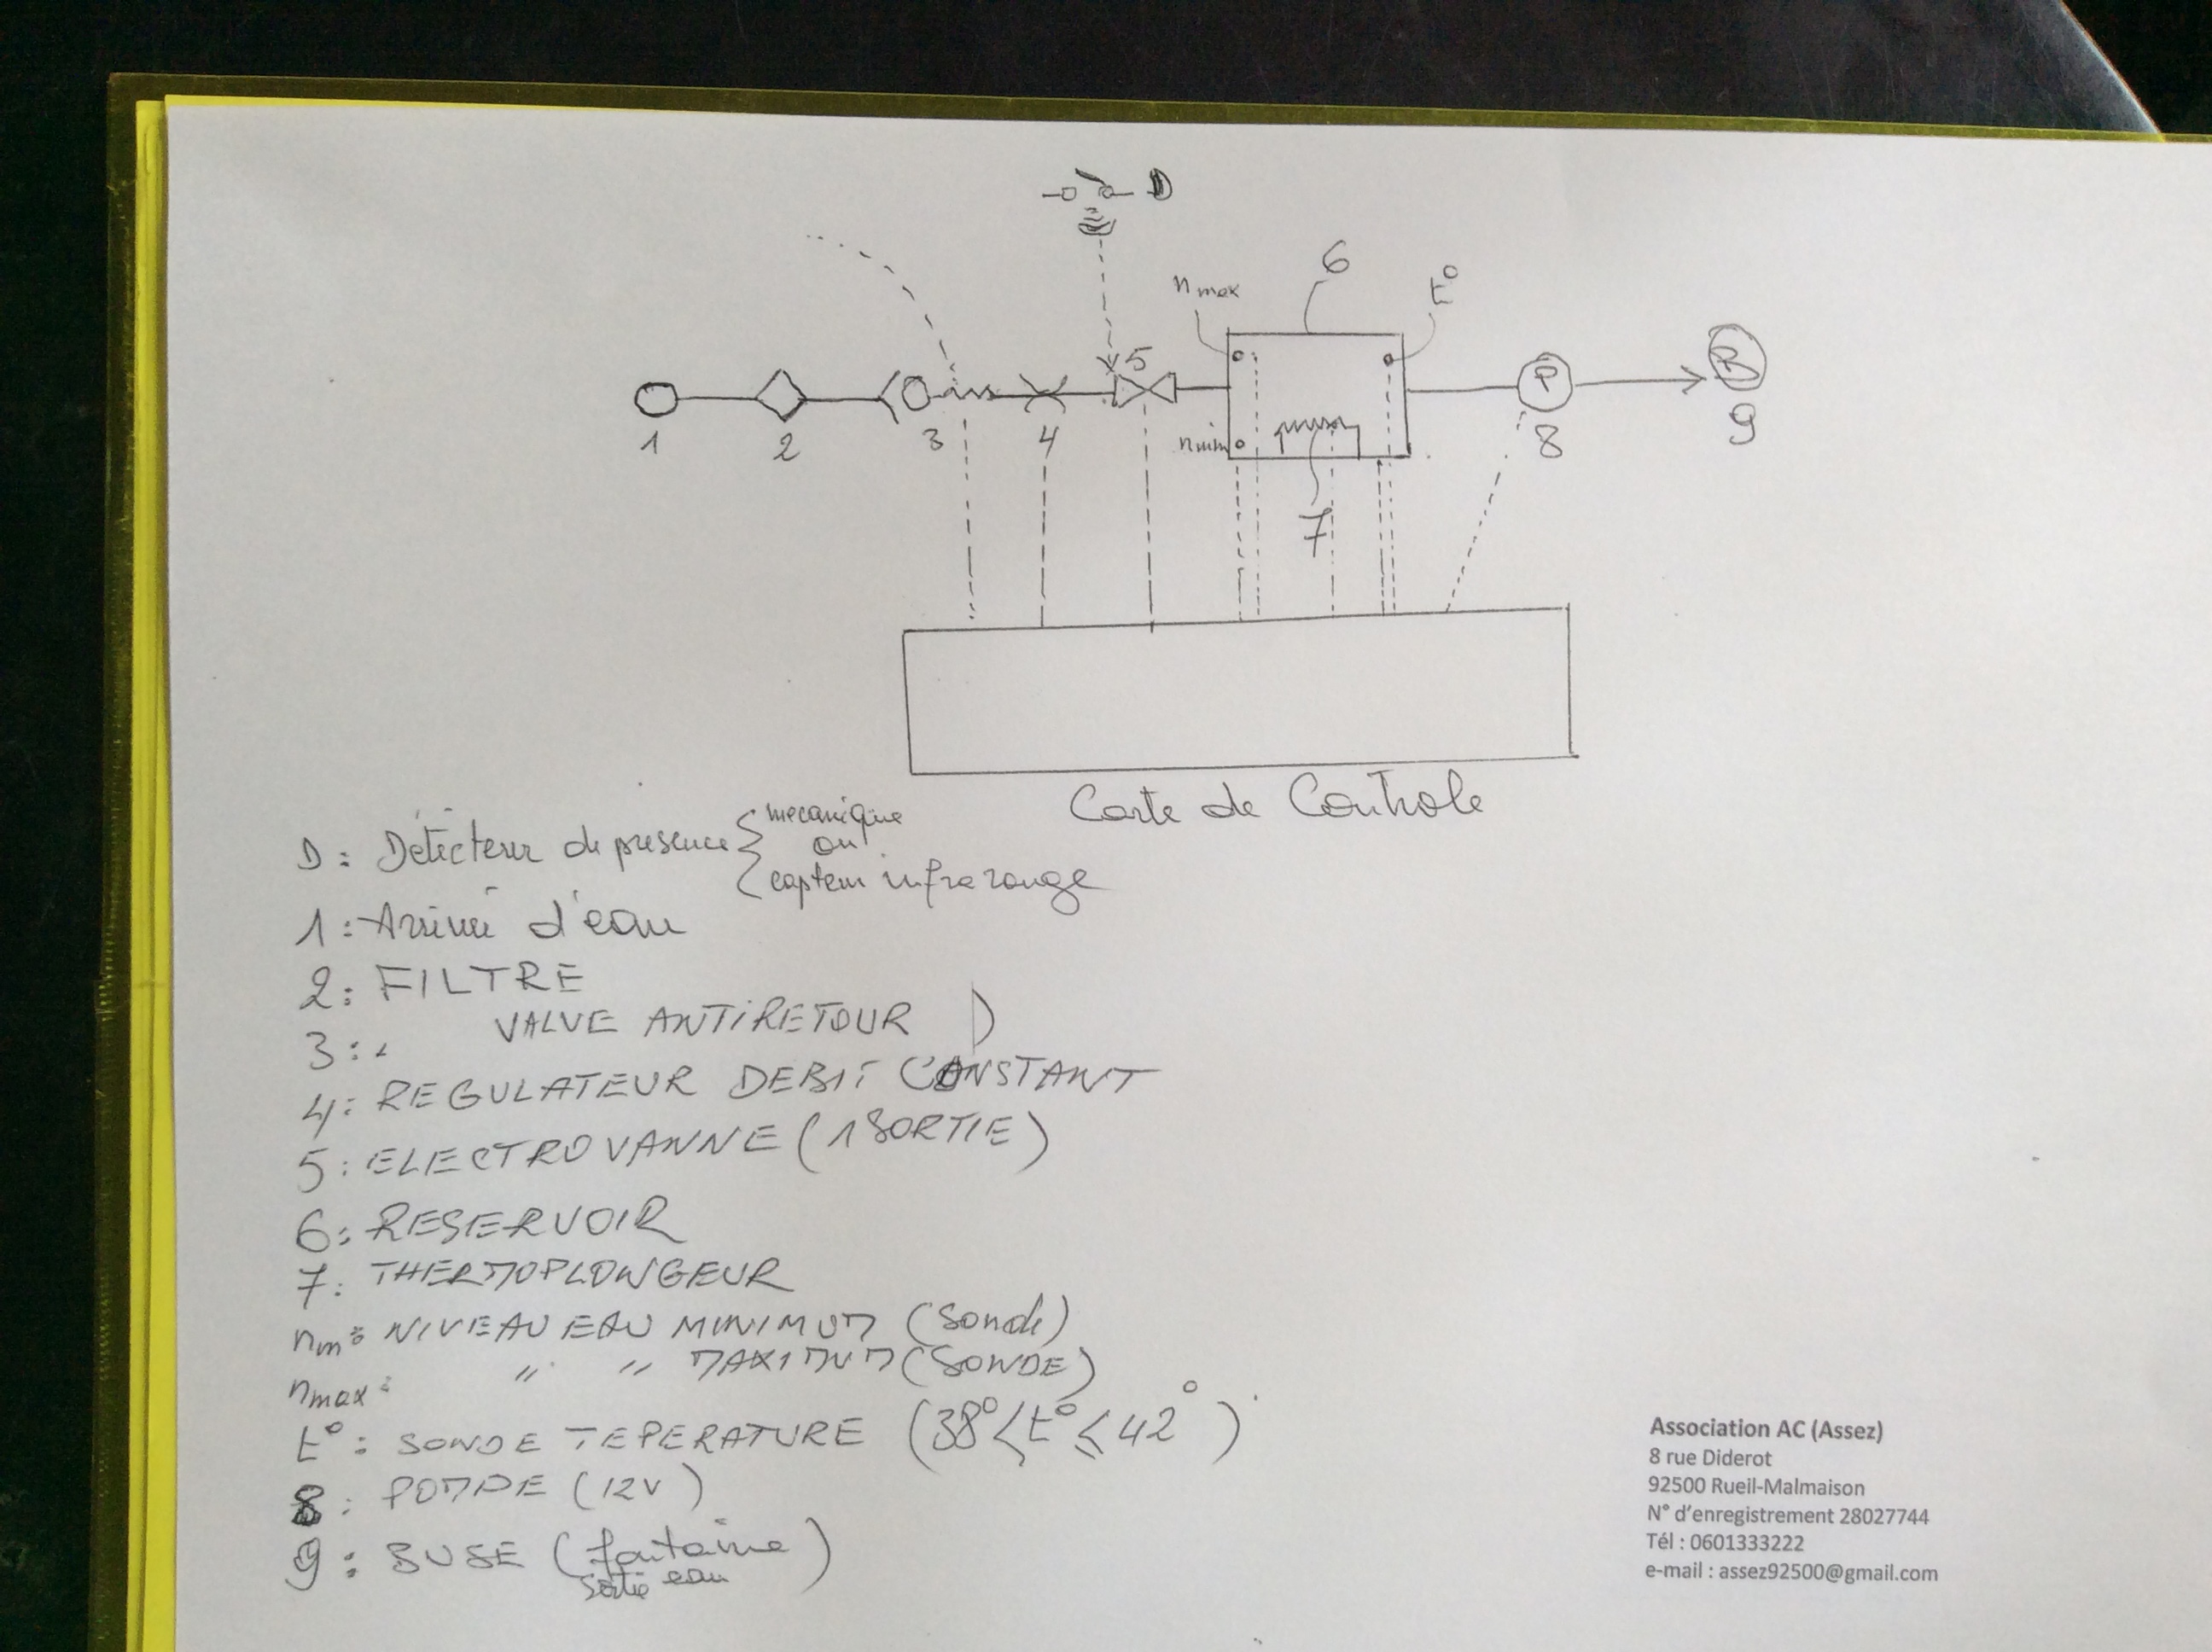 D
6
n max
t°
5
P
B
1
2
3
4
n min
7
8
9
Carte de Controle
D : Détecteur de presence { mecanique
ou
capteur infrarouge
1 : Arrivée d'eau
2 : FILTRE
3 : VALVE ANTIRETOUR
4 : REGULATEUR DEBIT CONSTANT
5 : ELECTROVANNE (1 SORTIE)
6 : RESERVOIR
7 : THERMOPLONGEUR
nm : NIVEAU EAU MINIMUM (Sonde)
nmax : " " MAXIMUM (SONDE)
t° : SONDE TEPERATURE (38° < t° ≤ 42°)
8 : POMPE (12V)
9 : BUSE (fontaine)
sortie eau
Association AC (Assez)
8 rue Diderot
92500 Rueil-Malmaison
N° d'enregistrement 28027744
Tél : 0601333222
e-mail : assez92500@gmail.com